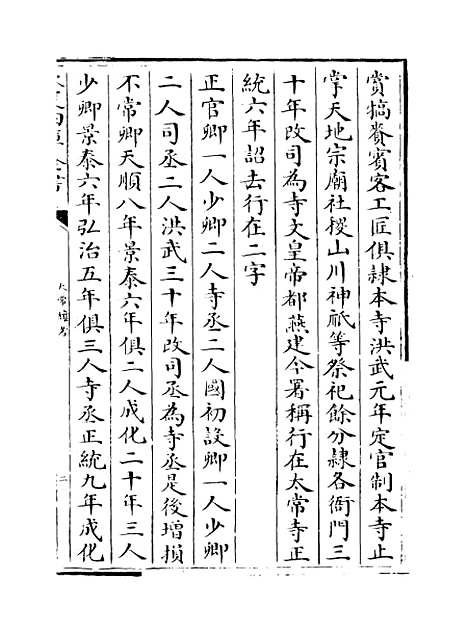 賞犒賚賓客工匠俱隷本寺洪武元年定官制本寺止
掌天地宗廟社稷山川神祇等祭祀餘分隷各衙門三
十年改司為寺文皇帝都燕建今署稱行在太常寺正
統六年詔去行在二字
正官卿一人少卿二人寺丞二人國初設卿一人少卿
二人司丞二人洪武三十年改司丞為寺丞是後增損
不常卿天順八年景泰六年俱二人成化二十年三人
少卿景泰六年弘治五年俱三人寺丞正統九年成化
太常續考
二